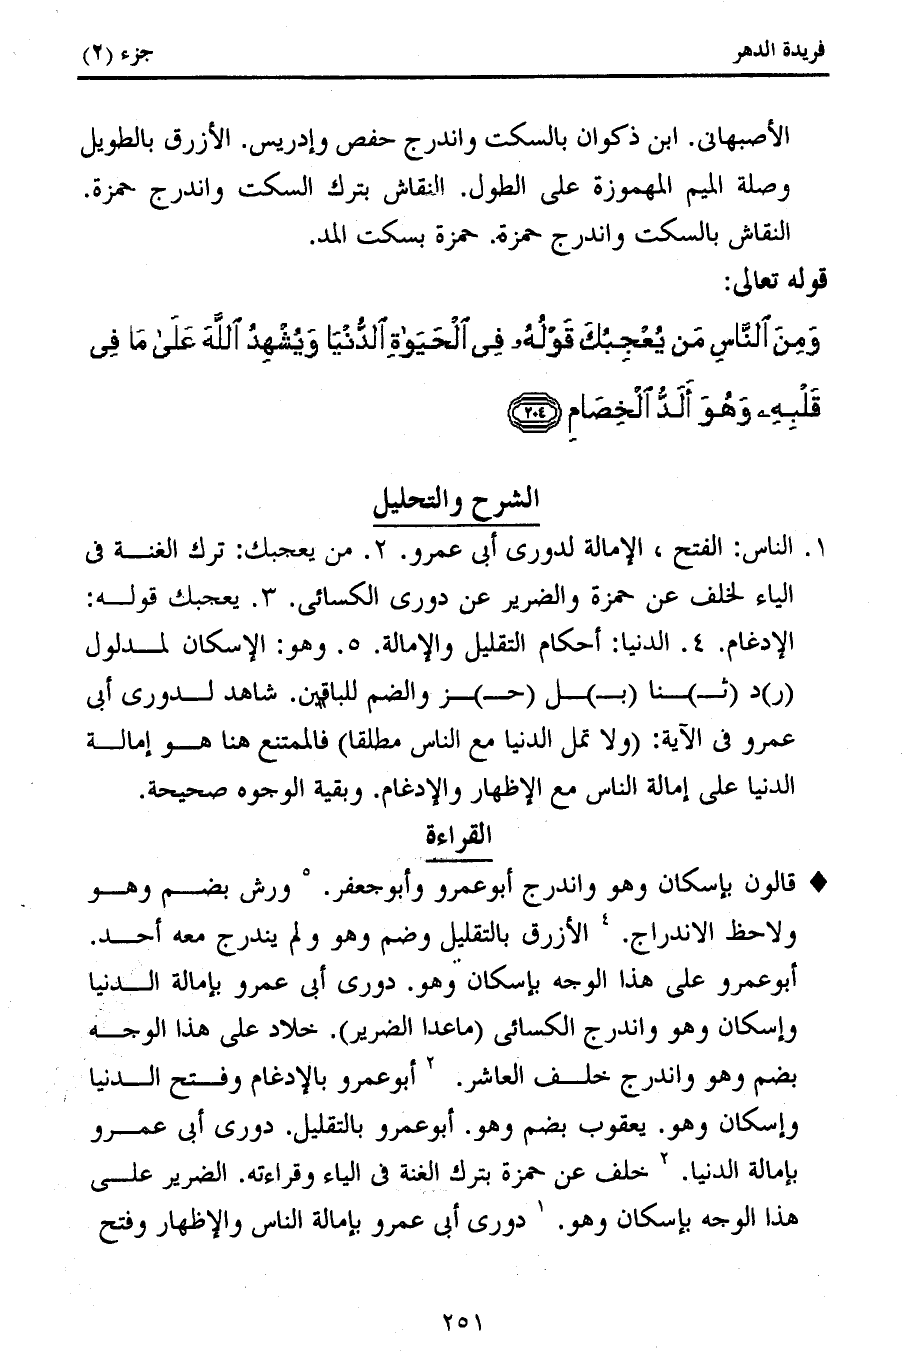 فريدة الدهر
جزء (٢)
الأصبهانى. ابن ذكوان بالسكت واندرج حفص وإدريس. الأزرق بالطويل
وصلة الميم المهموزة على الطول. النقاش بترك السكت واندرج حمزة.
النقاش بالسكت واندرج حمزة. حمزة بسكت المد.
قوله تعالى:
وَمِنَ ٱلنَّاسِ مَن يُعْجِبُكَ قَوْلُهُۥ فِى ٱلْحَيَوٰةِ ٱلدُّنْيَا وَيُشْهِدُ ٱللَّهَ عَلَىٰ مَا فِى
قَلْبِهِۦ وَهُوَ أَلَدُّ ٱلْخِصَامِ ٢٠٤
الشرح والتحليل
١. الناس: الفتح ، الإمالة لدورى أبى عمرو. ٢. من يعجبك: ترك الغنـــة فى
الياء لخلف عن حمزة والضرير عن دورى الكسائى. ٣. يعجبك قولـــه:
الإدغام. ٤. الدنيا: أحكام التقليل والإمالة. ٥. وهو: الإسكان لمـــدلول
(ر)د (ثــ)ــنا (بــ)ــل (حــ)ــز والضم للباقين. شاهد لـــدورى أبى
عمرو فى الآية: (ولا تمل الدنيا مع الناس مطلقا) فالممتنع هنا هـــو إمالـــة
الدنيا على إمالة الناس مع الإظهار والإدغام. وبقية الوجوه صحيحة.
القراءة
♦ قالون بإسكان وهو واندرج أبوعمرو وأبوجعفر. ٥ ورش بضـــم وهـــو
ولاحظ الاندراج. ٤ الأزرق بالتقليل وضم وهو ولم يندرج معه أحـــد.
أبوعمرو على هذا الوجه بإسكان وهو. دورى أبى عمرو بإمالة الـــدنيا
وإسكان وهو واندرج الكسائى (ماعدا الضرير). خلاد على هذا الوجـــه
بضم وهو واندرج خلـــف العاشر. ٢ أبوعمرو بالإدغام وفـــتح الـــدنيا
وإسكان وهو. يعقوب بضم وهو. أبوعمرو بالتقليل. دورى أبى عمـــرو
بإمالة الدنيا. ٢ خلف عن حمزة بترك الغنة فى الياء وقراءته. الضرير علـــى
هذا الوجه بإسكان وهو. ١ دورى أبى عمرو بإمالة الناس والإظهار وفتح
٢٥١